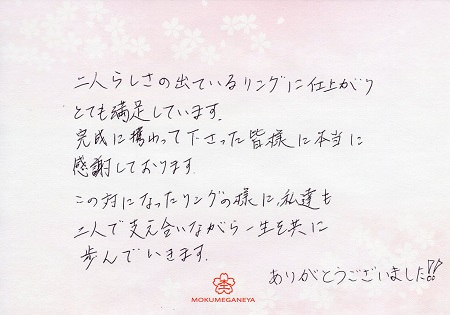 二人らしさの出ているリングに仕上がり
とても満足しています.
完成に携わって下さった皆様に本当に
感謝しております.
この対になったリングの様に,私達も
二人で支え合いながら一生を共に
歩んでいきます.
ありがとうございました!!
MOKUMEGANEYA